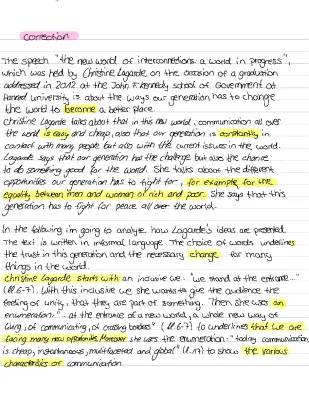 correction
The speech "the new world of interconnections a world in progress",
which was held by Christine Lagarde on the occasion of a graduation
addressed in 2012 at the John F. Kennedy school of Government at
Harvard University is about the ways our generation has to change
the world to become a better place.
Christine Lagarde talks about that in this new world, communication all over
the world is easy and cheap, also that our generation is constantly in
contact with many people but also with the current issues in the world.
Lagarde says that our generation has the challenge but also the chance
to do something good for the world. She talks about the different
opportunities our generation has to fight for, for example for the
equality between men and woman or rich and poor. She says that this
generation has to fight for peace all over the world.
In the following i'm going to analyse how Lagarde's ideas are presented.
The text is written in informal language. The choice of words underlines
the trust in this generation and the necessary change for many
things in the world.
Christine Lagarde starts with an inclusive we: "we stand at the entrance..."
(ll.6-7). With this inclusive we she wants to give the audience the
feeling of unity, that they are part of something. Then she uses an
enumeration: "... at the entrance of a new world, a whole new way of
living, of communicating, of crossing borders" (ll.6-7) to underlines that we are
facing many new opportunities. Moreover she uses the enumeration: "today communication
is cheap, instantaneous, multifaceted and global" (l.17) to show the various
characteristics of communication.